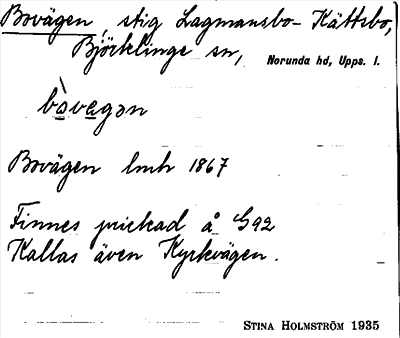 Bovägen, stig Lagmansbo - Kättsbo,
Björklinge sn, Norunda hd, Upps. l.
bòvegən
Bovägen lmh 1867
Finnes prickad å G92
Kallas även Kyrkvägen.
STINA HOLMSTRÖM 1935